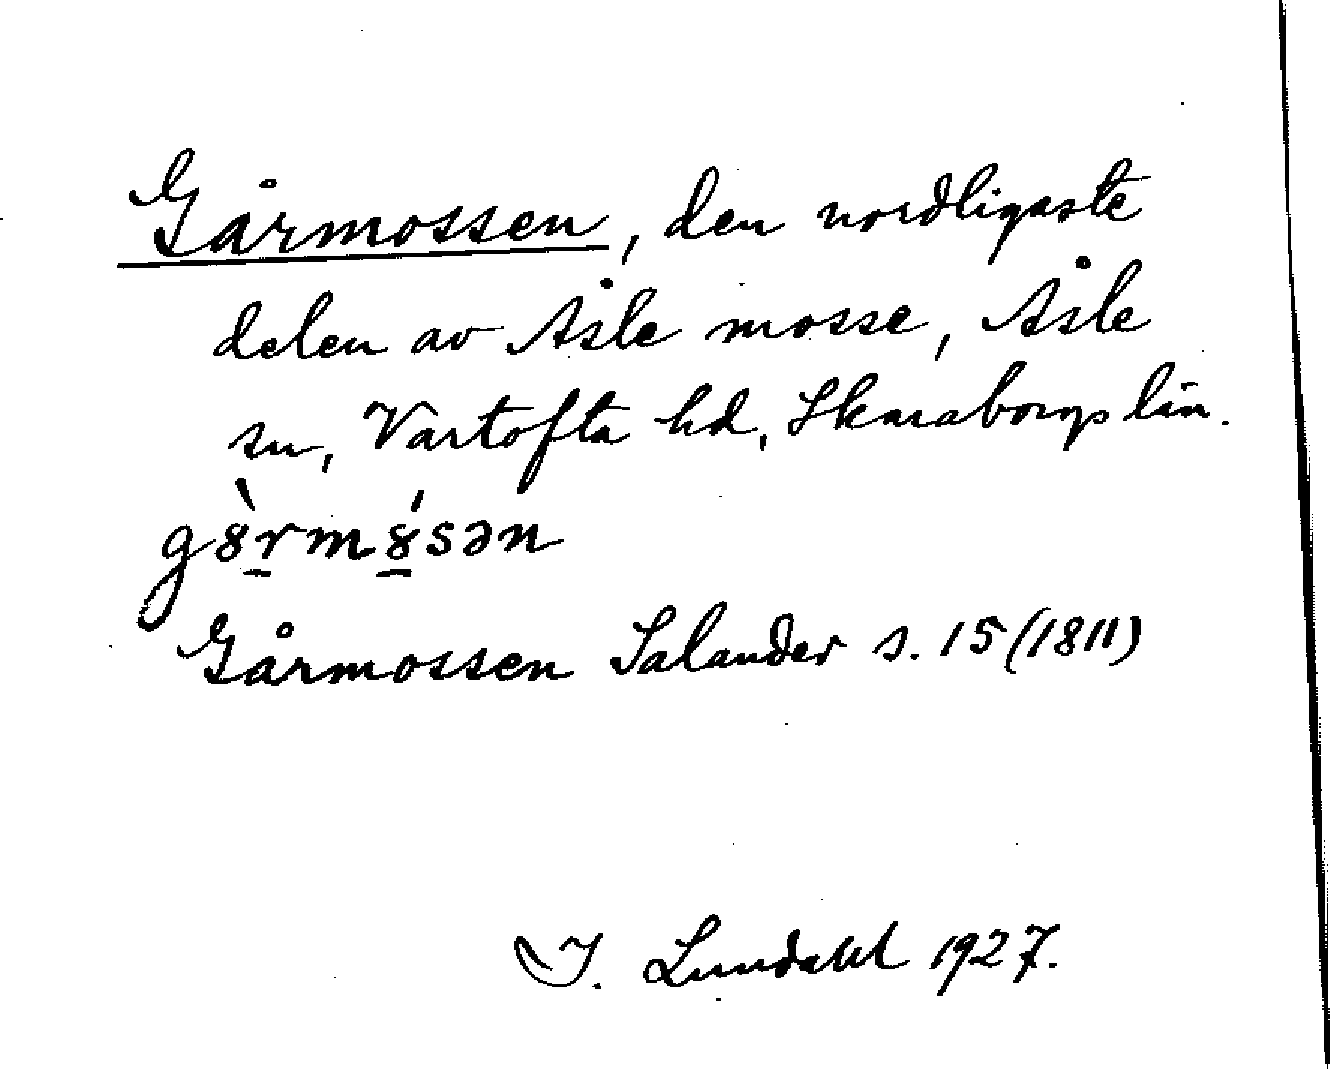 Gårmossen, den nordligaste
delen av Åsle mosse, Åsle
sn, Vartofta hd, Skaraborgs län.
Gårmossen Salander s. 15 (1811)
I. Lundahl 1927.